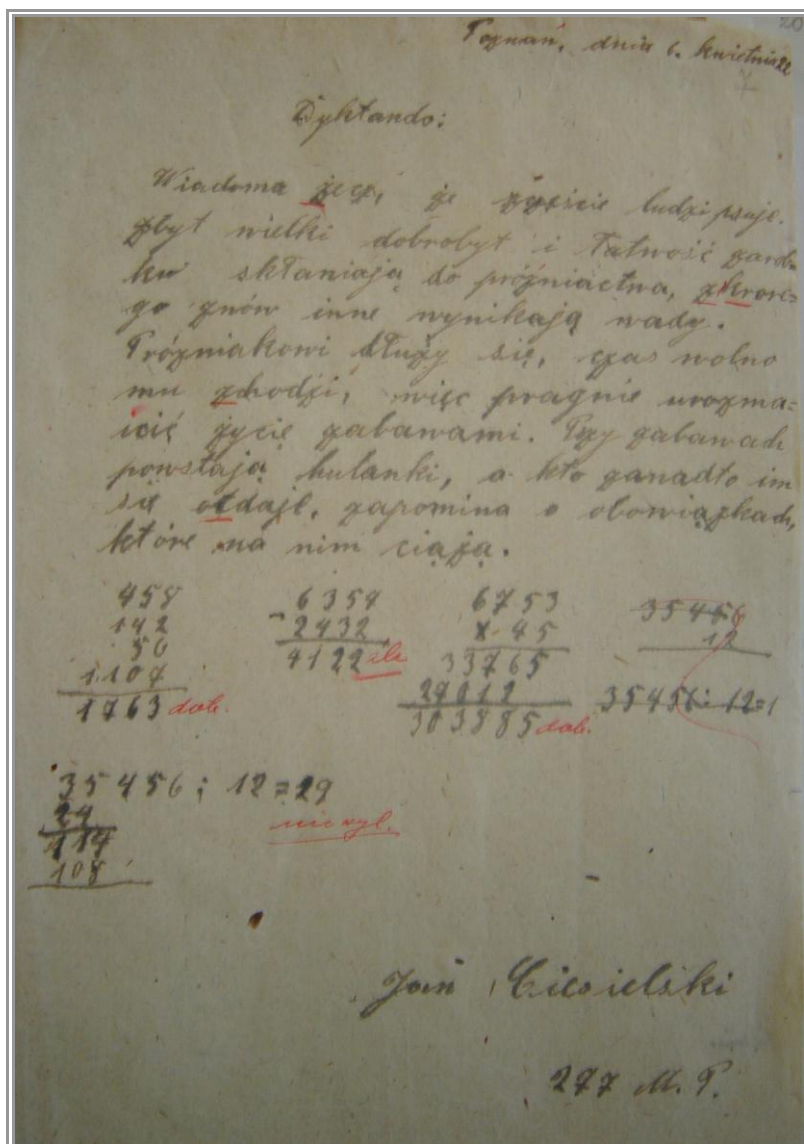 20
Poznań, dnia 6. kwietnia 22
Dyktando:
Wiadoma żecz, że szczście ludzi psuje.
Zbyt wielki dobrobyt i łatwość zarob-
ku skłaniają do próżniactwa, zktore-
go znów inne wynikają wady.
Próżniakowi dłuży się, czas wolno
mu zhodzi, więc pragnie urozma=
icić życie zabawami. Przy zabawach
powstają hulanki, a kto zanadto im
się otdaje, zapomina o obowiązkach,
które na nim ciążą.
458 6354 6753 35456
142 - 2432 x 45 12
56 4122 źle 33765
1107 27012 35456 : 12=1
1763 dob. 303885 dob.
35456 : 12 = 29
24
114
108
Jan Ciesielski
277 M. P.